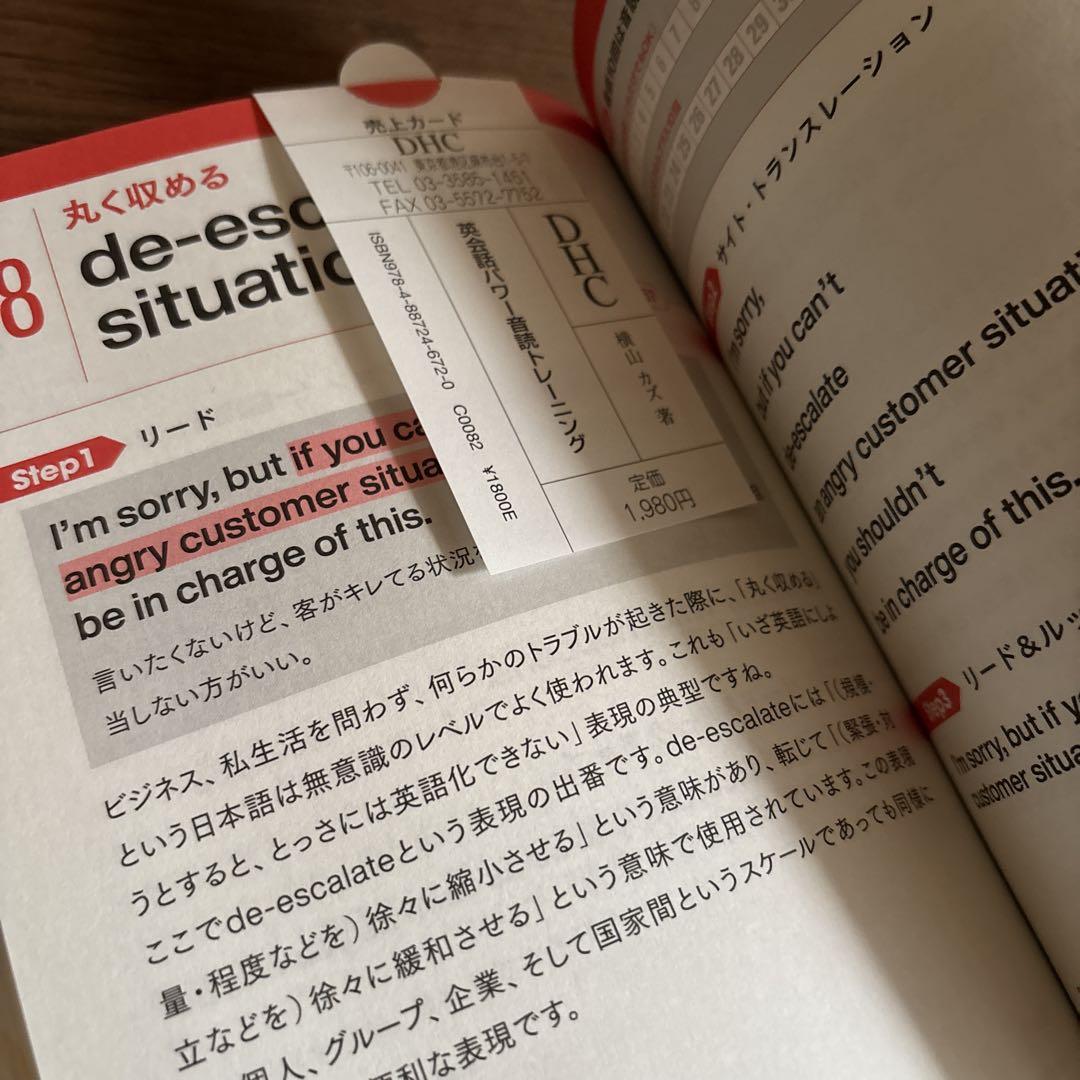 8
丸く収める
de-esc
situatio
Step1
リード
I'm sorry, but if you ca
angry customer situa
be in charge of this.
言いたくないけど、客がキレてる状況を
当しない方がいい。
ビジネス、私生活を問わず、何らかのトラブルが起きた際に、「丸く収める」
という日本語は無意識のレベルでよく使われます。これも「いざ英語にしよ
うとすると、とっさには英語化できない」表現の典型ですね。
ここでde-escalateという表現の出番です。de-escalateには「(規模・
量・程度などを) 徐々に縮小させる」という意味があり、転じて「(緊張・対
立などを) 徐々に緩和させる」という意味で使用されています。この表現
個人、グループ、企業、そして国家間というスケールであっても同様に
便利な表現です。
売上カード
DHC
〒106-0041 東京都港区麻布台1-5-7
TEL 03-3585-1451
FAX 03-5572-7752
DHC
横山 カズ 著
定価
1,980円
英会話パワー音読トレーニング
ISBN978-4-88724-672-0 C0082 ¥1800E
サイト・トランスレーション
I'm sorry,
but if you can't
de-escalate
an angry customer situati
you shouldn't
be in charge of this.
Step3
リード&ルッ
I'm sorry, but if y
customer situa